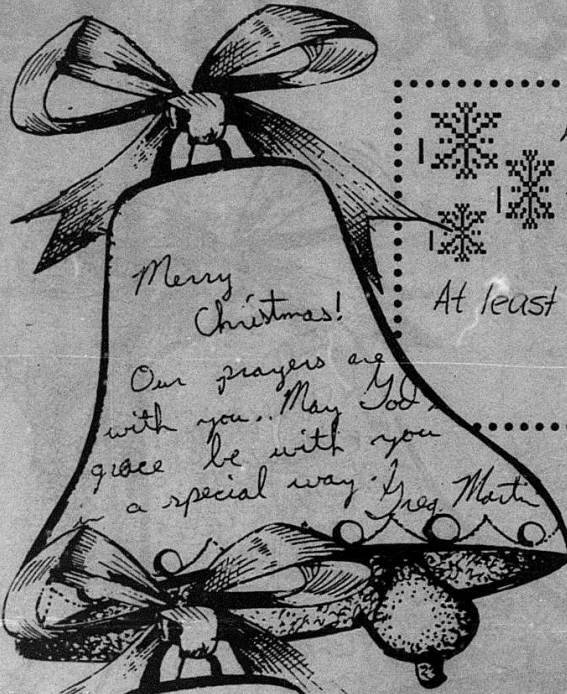 Merry
Christmas!
Our prayers are
with you.. May God's
grace be with you
in a special way. Greg Martin
At least